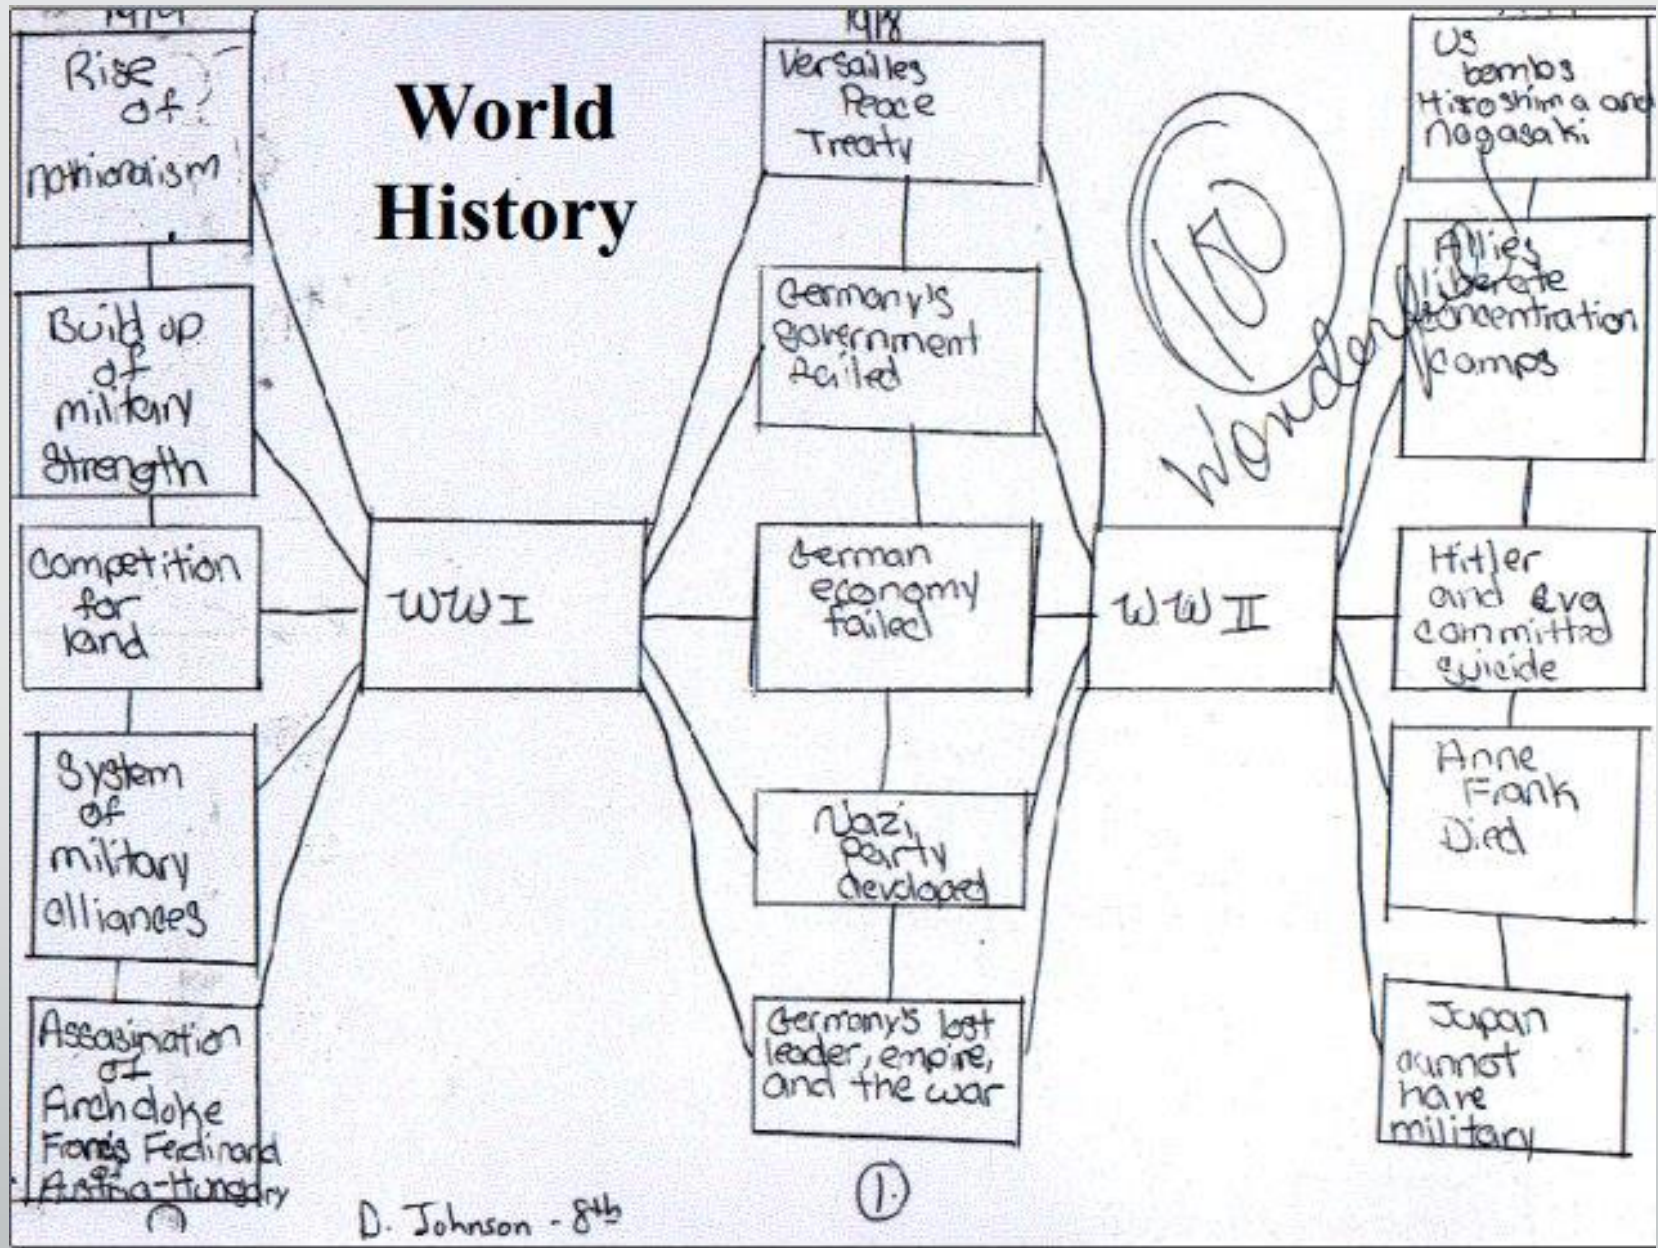 Rise
of
nathionalism
Build up
of
military
Strength
Competition
for
land
System
of
military
alliances
Assasination
of
Archduke
Ferdinand
of
Austria-Hungary
World
History
WWI
1918
Versailles
Peace
Treaty
Germany's
government
failed
German
economy
failed
Nazi
Party
developed
Germany's lost
leader, empire,
and the war
100
Wonderful
WWII
US
bombs
Hiroshima and
Nagasaki
Allies
liberate
concentration
camps
Hitler
and Eva
committed
suicide
Anne
Frank
Died
Japan
cannot
have
military
D. Johnson - 8th
1.